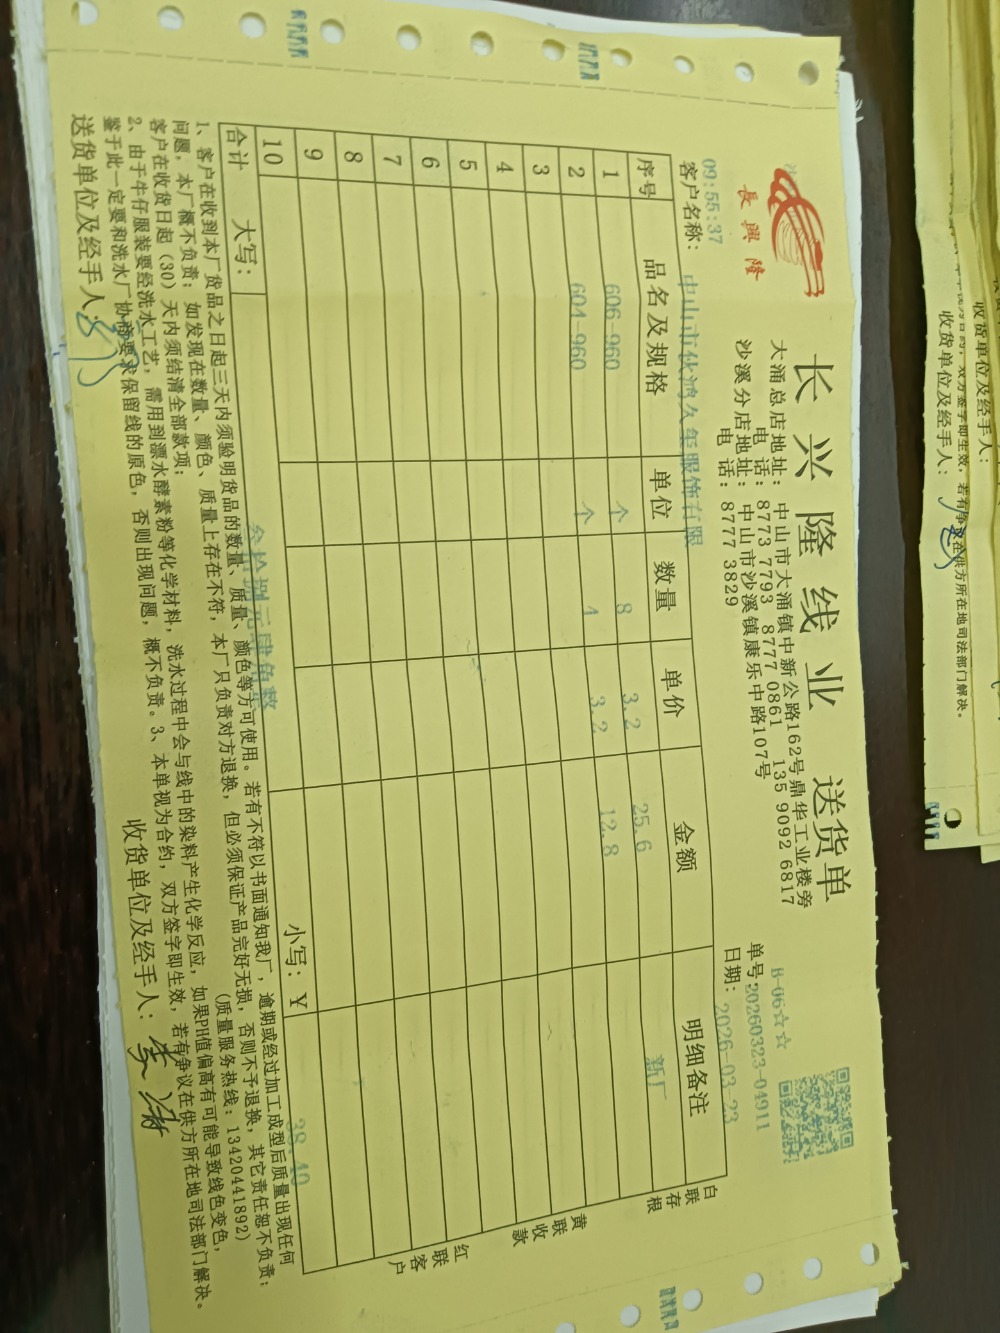 長興隆
长兴隆线业 送货单
大涌总店地址:中山市大涌镇中新公路162号鼎华工业楼旁
电 话:8773 7793 8777 0861 135 9092 6817
沙溪分店地址:中山市沙溪镇康乐中路107号
电 话:8777 3829
H-06☆☆
单号:20260323-04911
日期:2026-03-23
09:55:37
客户名称: 中山市 鸿久 服饰有限
序号 品名及规格 单位 数量 单价 金额 明细备注
1 606-960 个 8 3.2 25.6 新厂
2 604-960 个 4 3.2 12.8
3
4
5
6
7
8
9
10
合计 大写: 叁拾捌元肆角整 小写:¥ 38.40
白联存根
黄联收款
红联客户
1、客户在收到本厂货品之日起三天内须验明货品的数量、质量、颜色等方可使用。若有不符以书面通知我厂,逾期或经过加工成型后质量出现任何
问题,本厂概不负责;如发现在数量、颜色、质量上存在不符,本厂只负责对方退换,但必须保证产品完好无损,否则不予退换,其它责任恕不负责;
客户在收货日起(30)天内须结清全部款项; (质量服务热线:13420441892)
2、由于牛仔服装要经洗水工艺,需用到漂水酵素粉等化学材料,洗水过程中会与线中的染料产生化学反应,如果PH值偏高有可能导致线色变色,
鉴于此一定要和洗水厂协商要求保留线的原色,否则出现问题,概不负责。3、本单视为合约,双方签字即生效,若有争议在供方所在地司法部门解决。
送货单位及经手人: 收货单位及经手人:
收货单位及经手人:
双方签字即生效,若有争议在供方所在地司法部门解决。
收货单位及经手人: